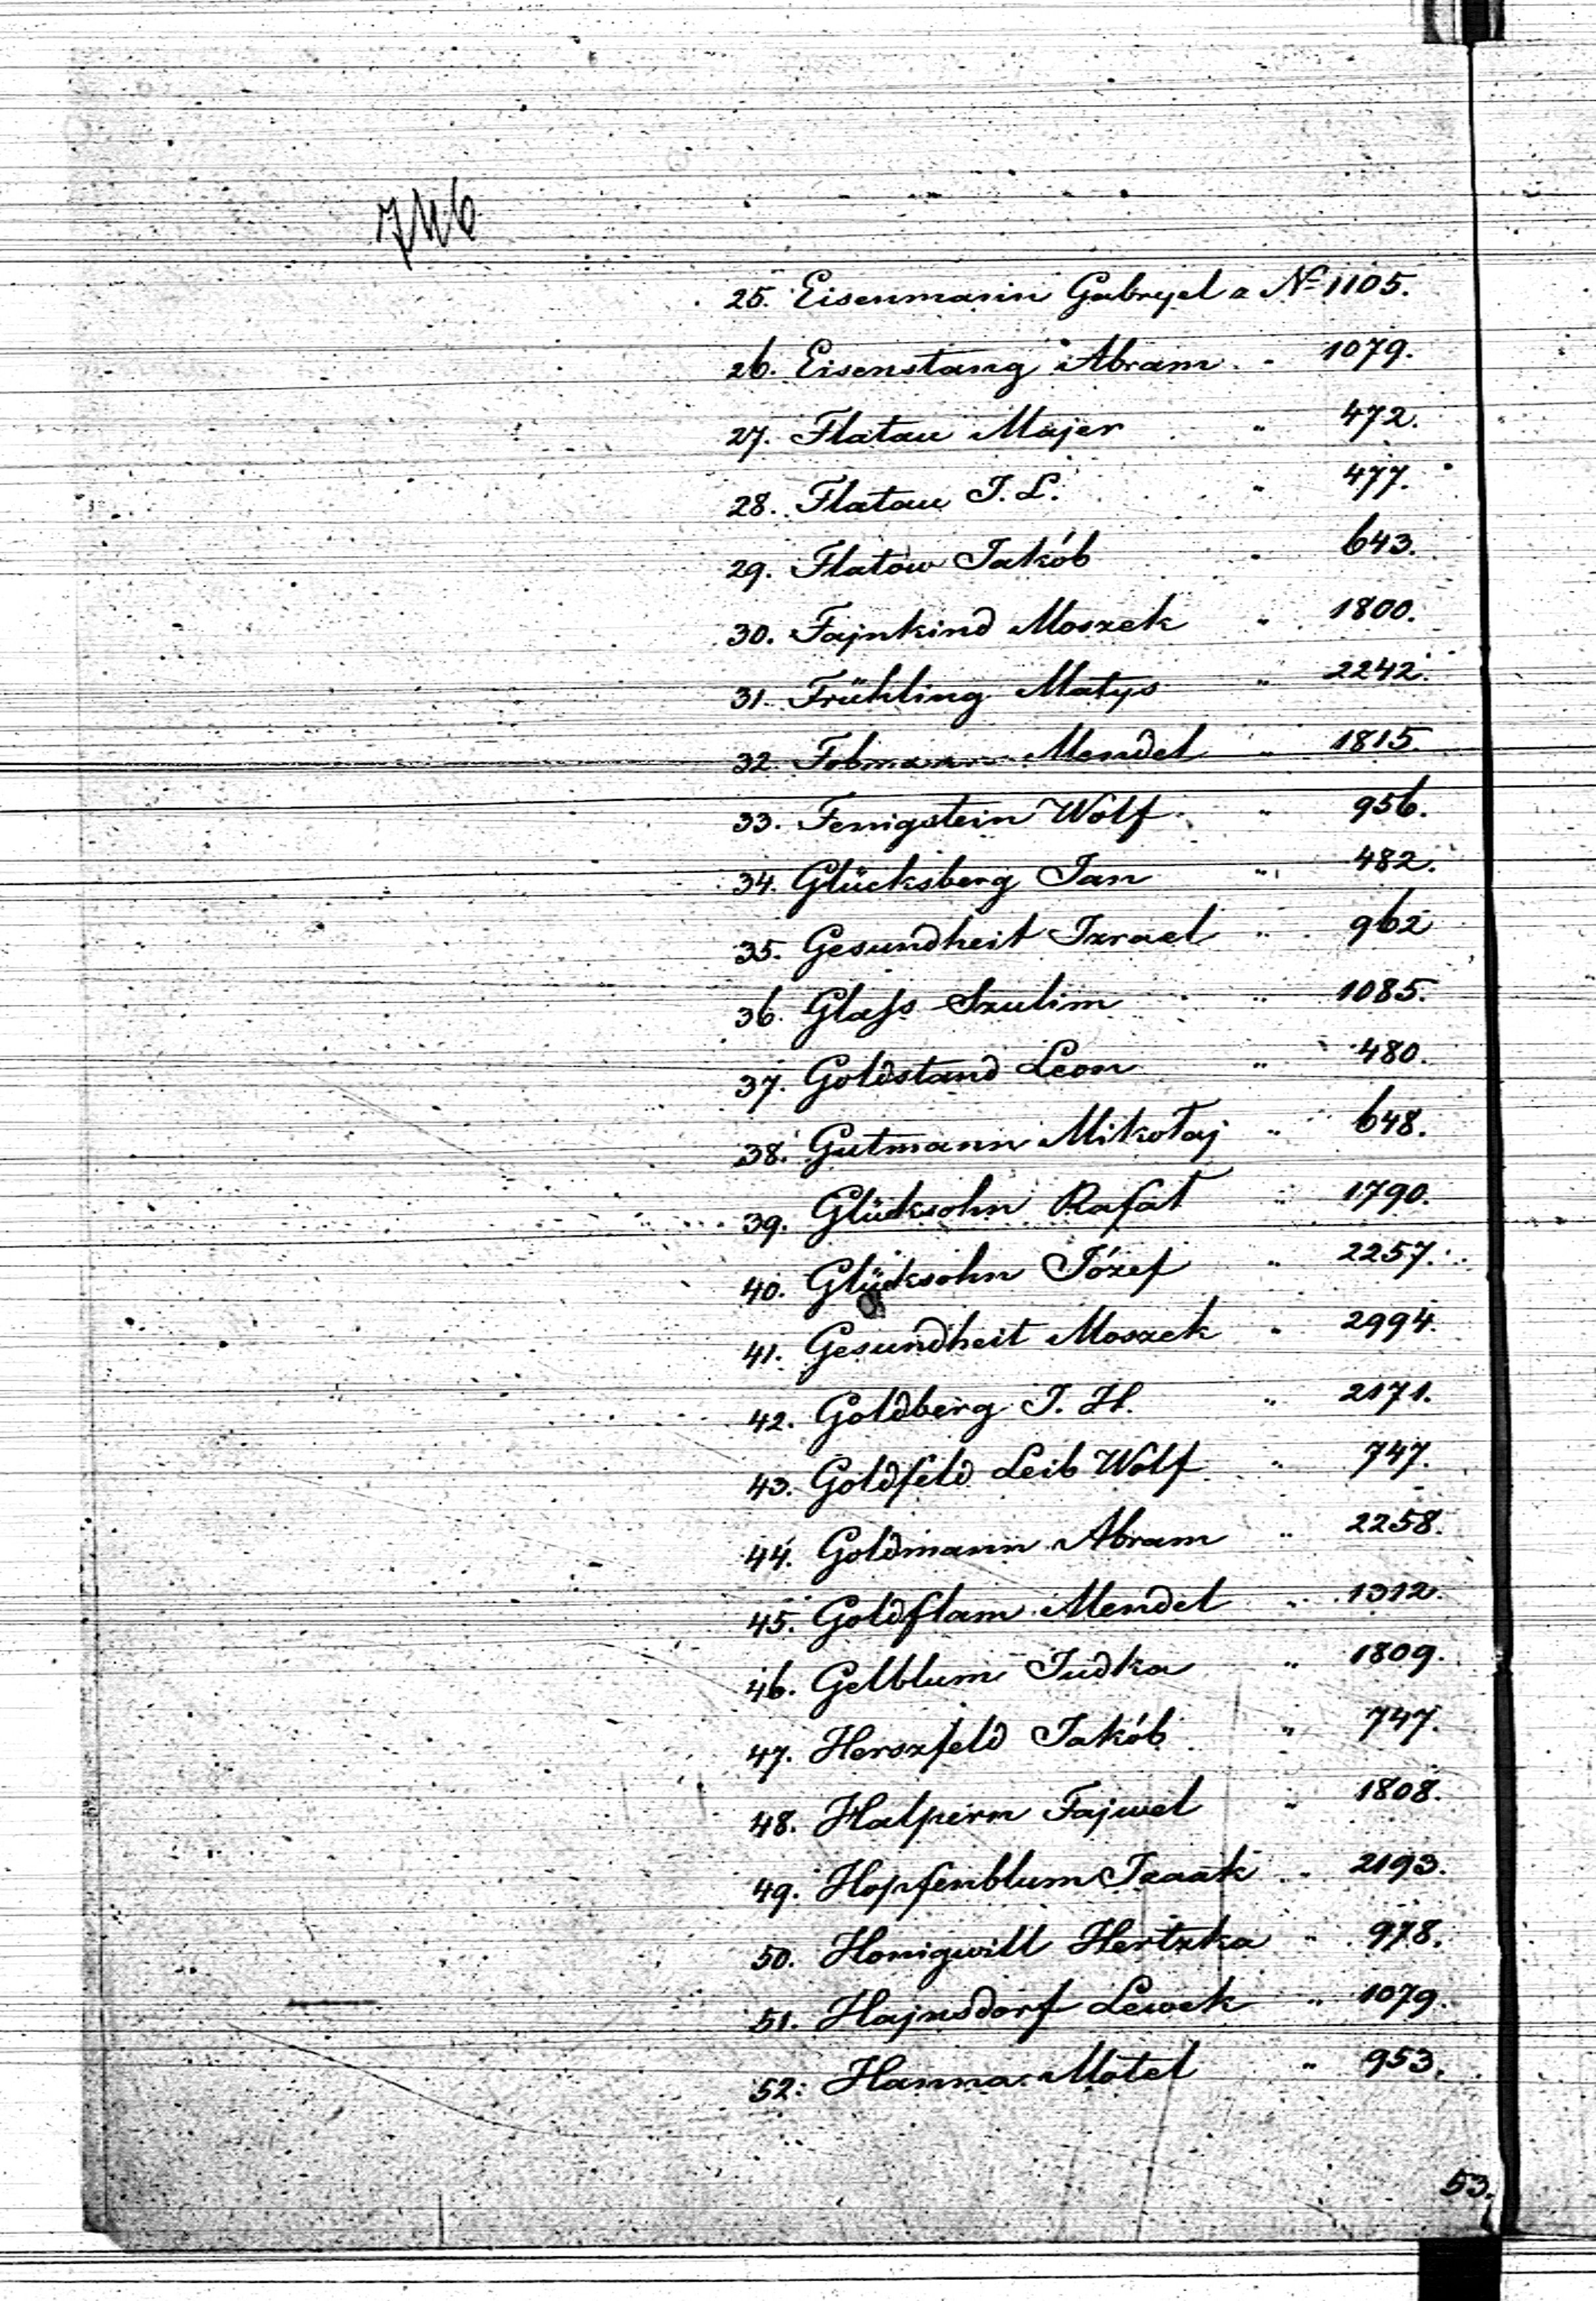 746
25. Eisenmann Gabryel z № 1105.
26. Eisenstang Abram " 1079.
27. Flatau Majer " 472.
28. Flatau J. L. " 477.
29. Flatow Jakób " 643.
30. Fajnkind Moszek " 1800.
31. Frühling Matys " 2242.
32. Mendel " 1815.
33. Fenigstein Wolf " 956.
34. Glücksberg Jan " 482.
35. Gesundheit Izrael " 962
36. Glaſs Szulim " 1085.
37. Goldstand Leon " 480.
38. Gutmann Mikołaj " 648.
39. Glücksohn Rafał " 1790.
40. Glücksohn Józef " 2257.
41. Gesundheit Moszek " 2994.
42. Goldberg J. H. " 2171.
43. Goldfeld Leib Wolf " 747.
44. Goldmann Abram " 2258.
45. Goldflam Mendel " 1312.
46. Gelblum Judka " 1809.
47. Herszfeld Jakób " 747.
48. Halpern Fajwel " 1808.
49. Hopfenblum Izaak " 2193.
50. Honigwill Hertzka " 978.
51. Hajnsdorf Lewek " 1079.
52. Hanna Motel " 953.
53.